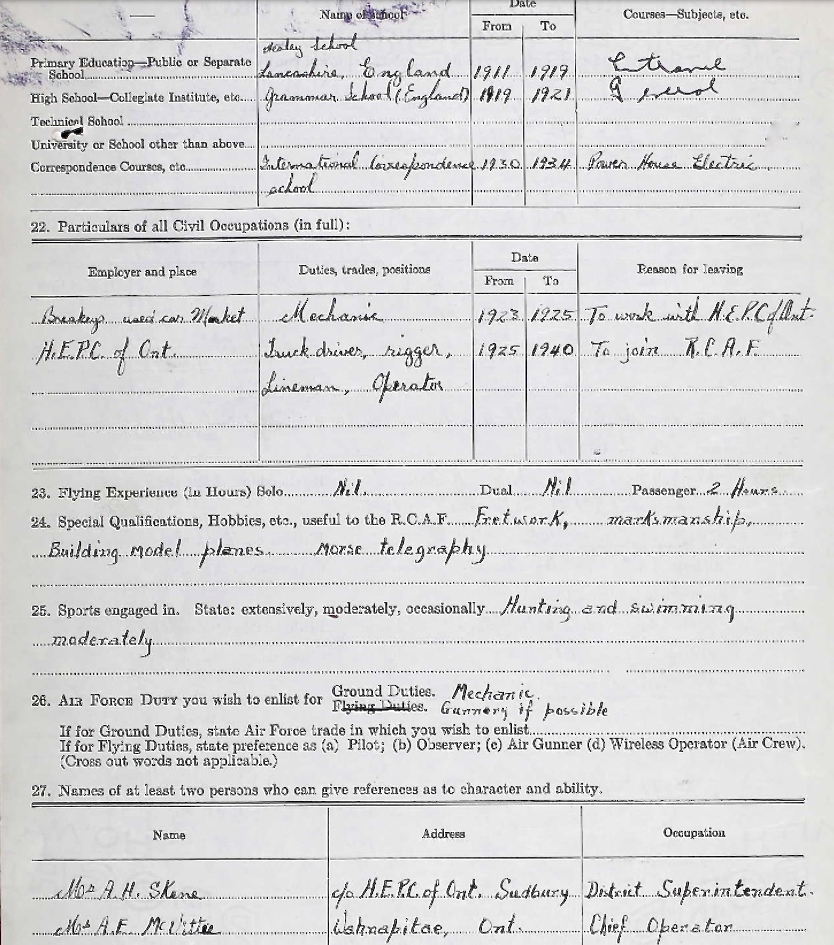 Date
— Name of school Courses—Subjects, etc.
From To
School
Primary Education—Public or Separate
School Lancashire, England 1911 1919 Entrance
High School—Collegiate Institute, etc. Grammar School (England) 1919 1921 General
Technical School
University or School other than above
Correspondence Courses, etc. International Correspondence 1930 1934 Power House Electric
school
22. Particulars of all Civil Occupations (in full):
Date
Employer and place Duties, trades, positions Reason for leaving
From To
used car Market Mechanic 1923 1925 To work with H.E.P.C of Ont.
H.E.P.C. of Ont. Truck driver, rigger, 1925 1940 To join R.C.A.F.
Lineman, Operator
23. Flying Experience (in Hours) Solo Nil. Dual Nil Passenger 2 Hours
24. Special Qualifications, Hobbies, etc., useful to the R.C.A.F. Fretwork, marksmanship,
Building model planes Morse telegraphy
25. Sports engaged in. State: extensively, moderately, occasionally Hunting and swimming
moderately
26. AIR FORCE DUTY you wish to enlist for Ground Duties. Mechanic.
Flying Duties. Gunnery if possible
If for Ground Duties, state Air Force trade in which you wish to enlist
If for Flying Duties, state preference as (a) Pilot; (b) Observer; (c) Air Gunner (d) Wireless Operator (Air Crew).
(Cross out words not applicable.)
27. Names of at least two persons who can give references as to character and ability.
Name Address Occupation
A.H. Skene c/o H.E.P.C. of Ont. Sudbury District Superintendent.
A.F. McVittie Wahnapitae, Ont. Chief Operator